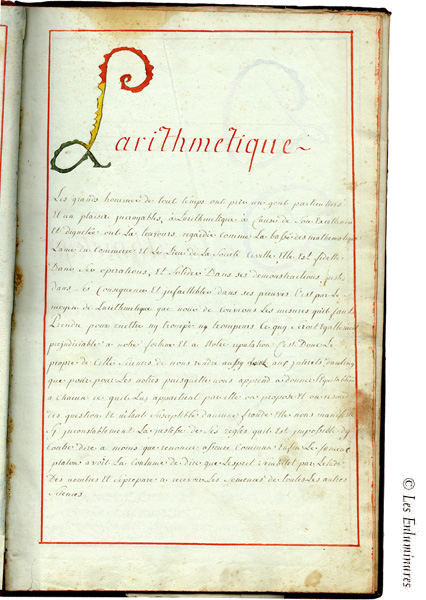 Larithmetique
Les grands hommes de tout temps ont pris un gout particulier
Et un plaisir incroyables, à Larithmetique à Cause de Son Excellence
Et ont La toujours regardée comme La baße des mathematique
Lame du Commerce Et Le Lien de La Societé Civille Elle Est fidelle
Dans Ses operations, Et Solide Dans ses demonstractions, juste
dans Ses Consequences Et jnfaillible dans ses preuves C'est par Le
moyen de Larithmetique que nous de couvrons Les mesures quil faut
Prendre pour nestre ny trompés ny trompeurs Ce quy Seroit Egallement
prejudiciable a notre Et a Notre reputation C'est Donc Le
propre de Cette Siences de nous rendre aussy aux jnterets dautruy
que pour Les notres puisquelle nous apprend a donner
a Chacun ce qui Leur appartient par elle on propose Et on
des question Et nestant Susceptible daucune fraude Elle nous
Sy jnconstablement La justesse de Ses regles quil Est jmpossible dy
contre dire a moins que renoncer au sens Commun Le fameux
platon avoit La Coutume de dire que Lesprit par Letude
Des nombres Et Se prepare a recevoir Les Semences de toutes Les autres
Siences.
© Les Enluminures